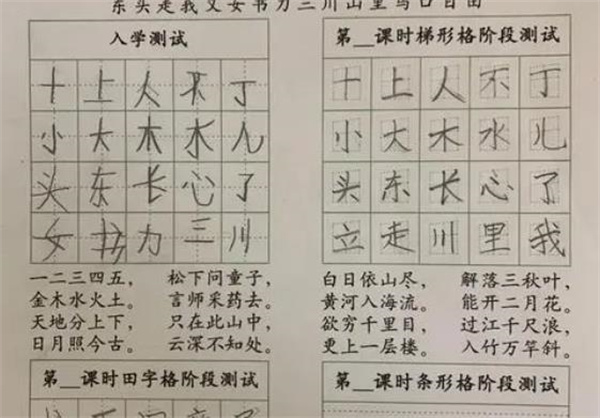 东头走我义女书力三川山里马口日田
入学测试
十上人不丁
小大木水儿
头东长心了
女书力三川
一二三四五，　松下问童子，
金木水火土。　言师采药去。
天地分上下，　只在此山中，
日月照今古。　云深不知处。
第__课时田字格阶段测试
第__课时梯形格阶段测试
十上人不丁
小大木水儿
头东长心了
立走川里我
白日依山尽，　解落三秋叶，
黄河入海流。　能开二月花。
欲穷千里目，　过江千尺浪，
更上一层楼。　入竹万竿斜。
第__课时条形格阶段测试